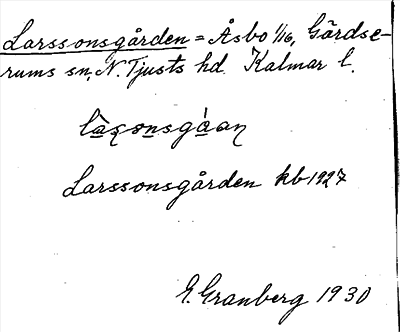 Larssonsgården = Åsbo 1/16, Gärdse-
rums sn, N. Tjusts hd Kalmar l.
Larssonsgården kb 1927
G. Granberg 1930